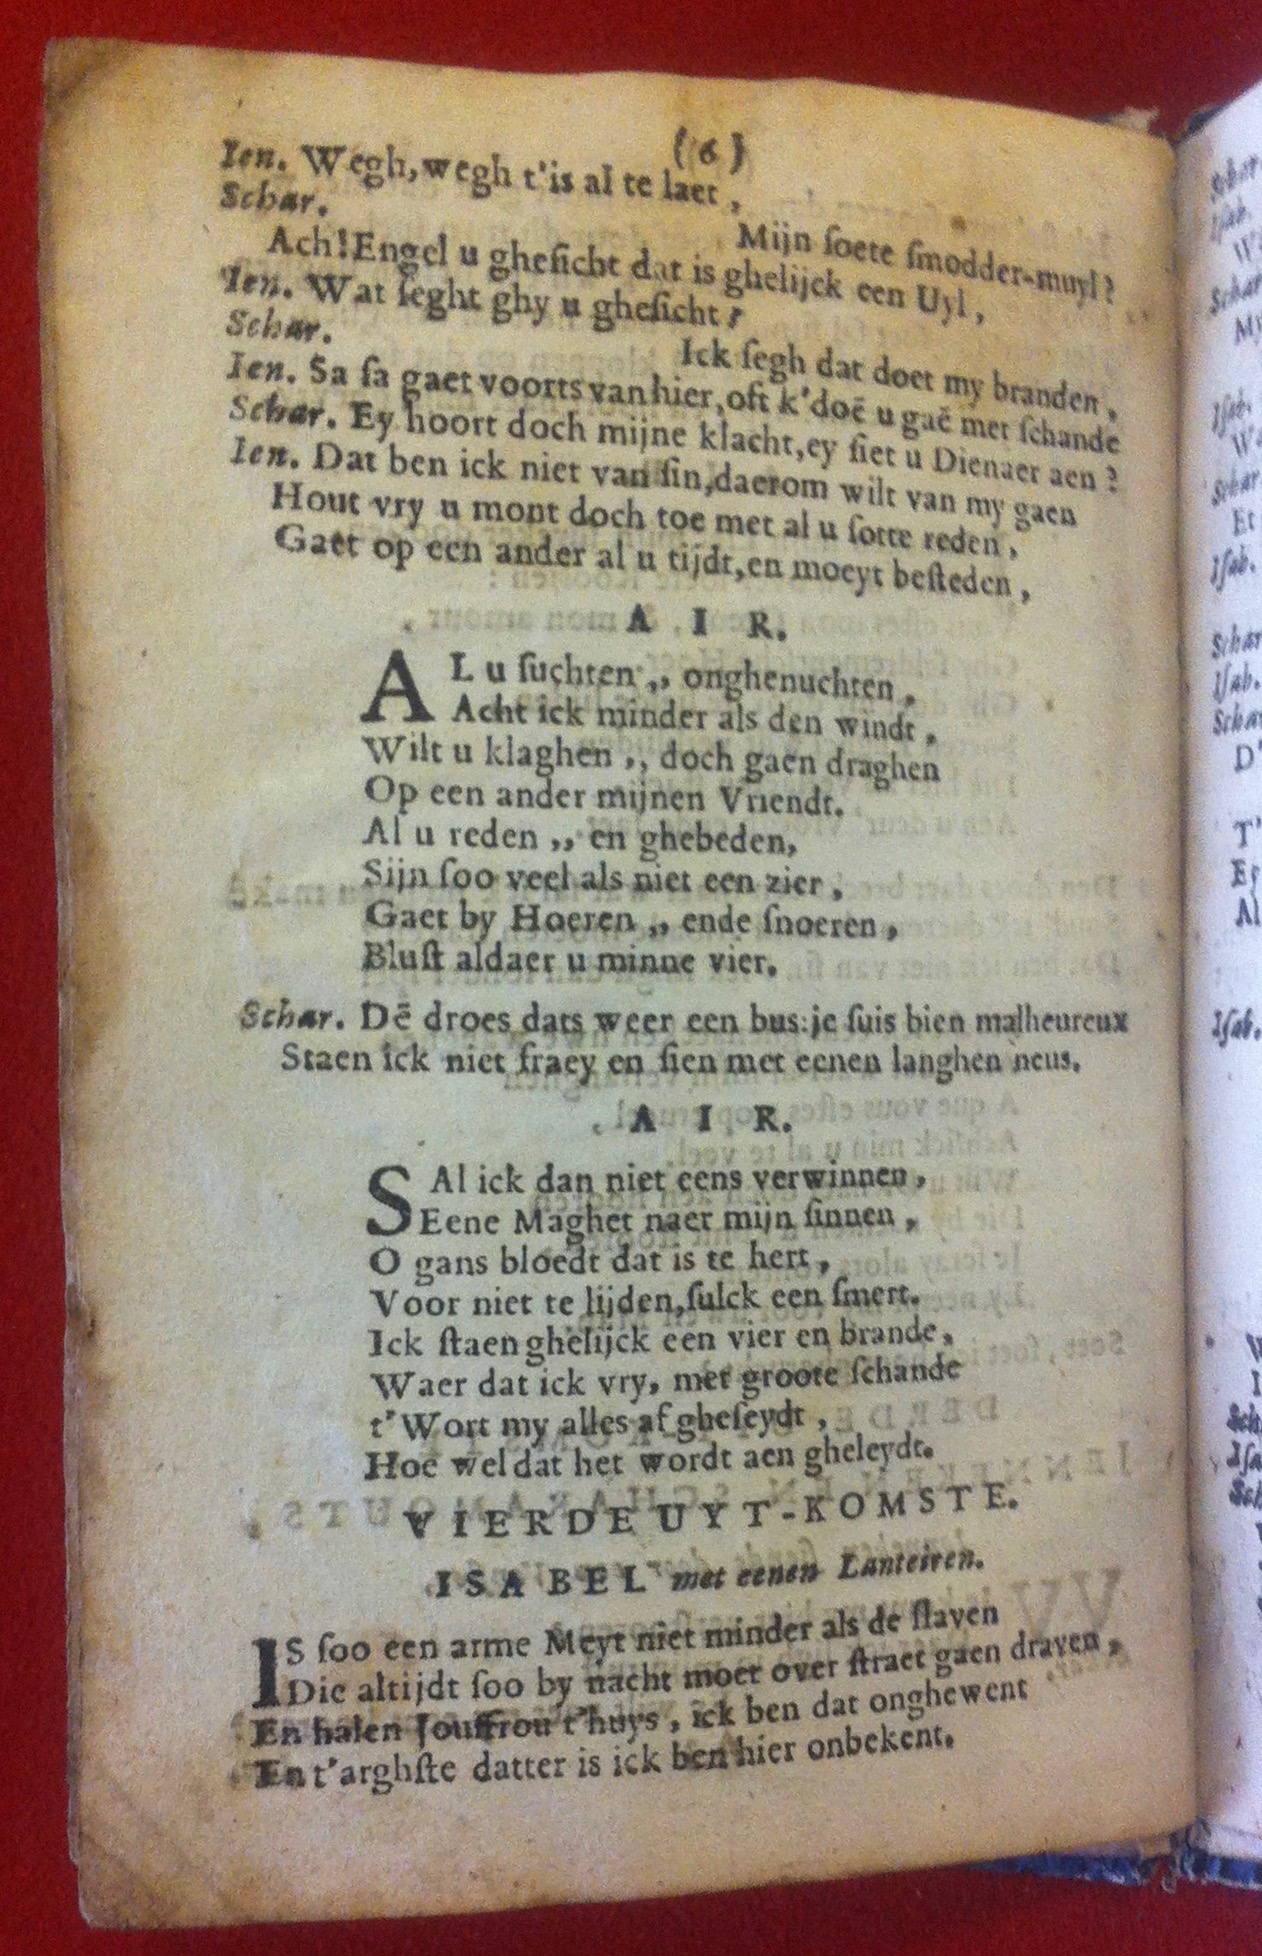 ( 6 )
Ien. Wegh, wegh t'is al te laet ,
Schar.
Mijn soete smodder-muyl?
Ach! Engel u ghesicht dat is ghelijck een Uyl ,
Ien. Wat seght ghy u ghesicht?
Schar.
Ick segh dat doet my branden ,
Ien. Sa sa gaet voorts van hier, oft k'doē u gaē met schande
Schar. Ey hoort doch mijne klacht, ey siet u Dienaer aen ?
Ien. Dat ben ick niet van sin, daerom wilt van my gaen
Hout vry u mont doch toe met al u sotte reden ,
Gaet op een ander al u tijdt, en moeyt besteden ,
A I R.
AL u suchten ,, onghenuchten ,
Acht ick minder als den windt ,
Wilt u klaghen ,, doch gaen draghen
Op een ander mijnen Vriendt.
Al u reden ,, en ghebeden,
Sijn soo veel als niet een zier ,
Gaet by Hoeren ,, ende snoeren ,
Blust aldaer u minne vier.
Schar. Dē droes dats weer een bus: je suis bien malheureux
Staen ick niet fraey en sien met eenen langhen neus.
A I R.
SAl ick dan niet eens verwinnen ,
Eene Maghet naer mijn sinnen ,
O gans bloedt dat is te hert ,
Voor niet te lijden, sulck een smert.
Ick staen ghelijck een vier en brande ,
Waer dat ick vry, met groote schande
t'Wort my alles af gheseydt ,
Hoe wel dat het wordt aen gheleydt.
VIERDE UYT-KOMSTE.
ISABEL met eenen Lanteiren.
IS soo een arme Meyt niet minder als de slaven
Die altijdt soo by nacht moet over straet gaen draven ,
En halen Jouffrou t'huys , ick ben dat onghewent
En t'arghste datter is ick ben hier onbekent.
Schar
Isab.
Schar
My
Isab.
Schar
Et
Isab.
Schar
Isab.
Schar
D'
T'
Al
Isab.